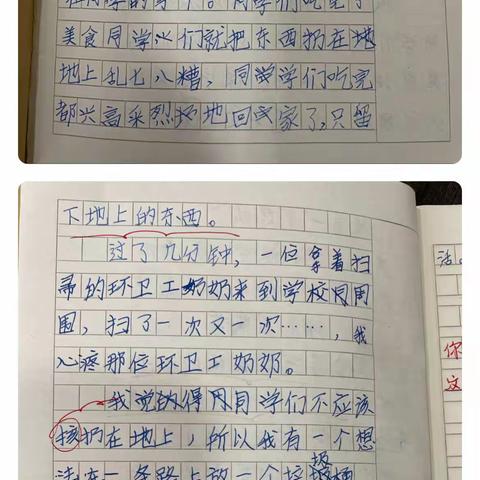 美食同学心们就把东西扔在地
地上乱七八糟,同学学们吃完
都兴高采烈扬地回家了,只留
下地上的东西。
过了几分钟,一位拿着扫
帚的环卫工奶奶来到学校同周
围,扫了一次又一次……,我
心疼那位环卫工奶奶。
我觉的得同学们不应该
扔在地上,所以我有一个想
法在一条路上放一个垃圾桶
活。
你
这